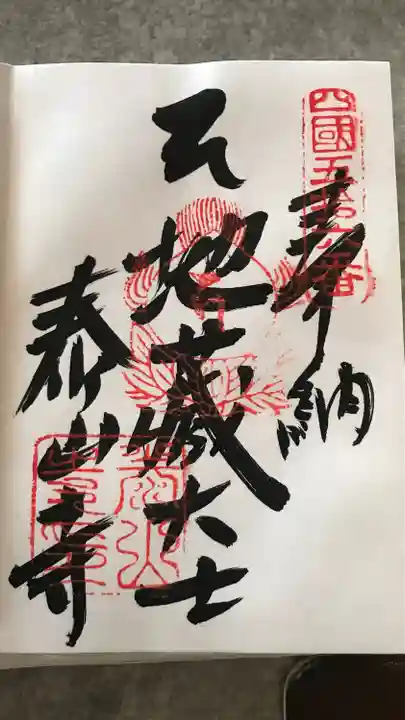 四國五拾六番
奉納
地蔵大士
泰山寺